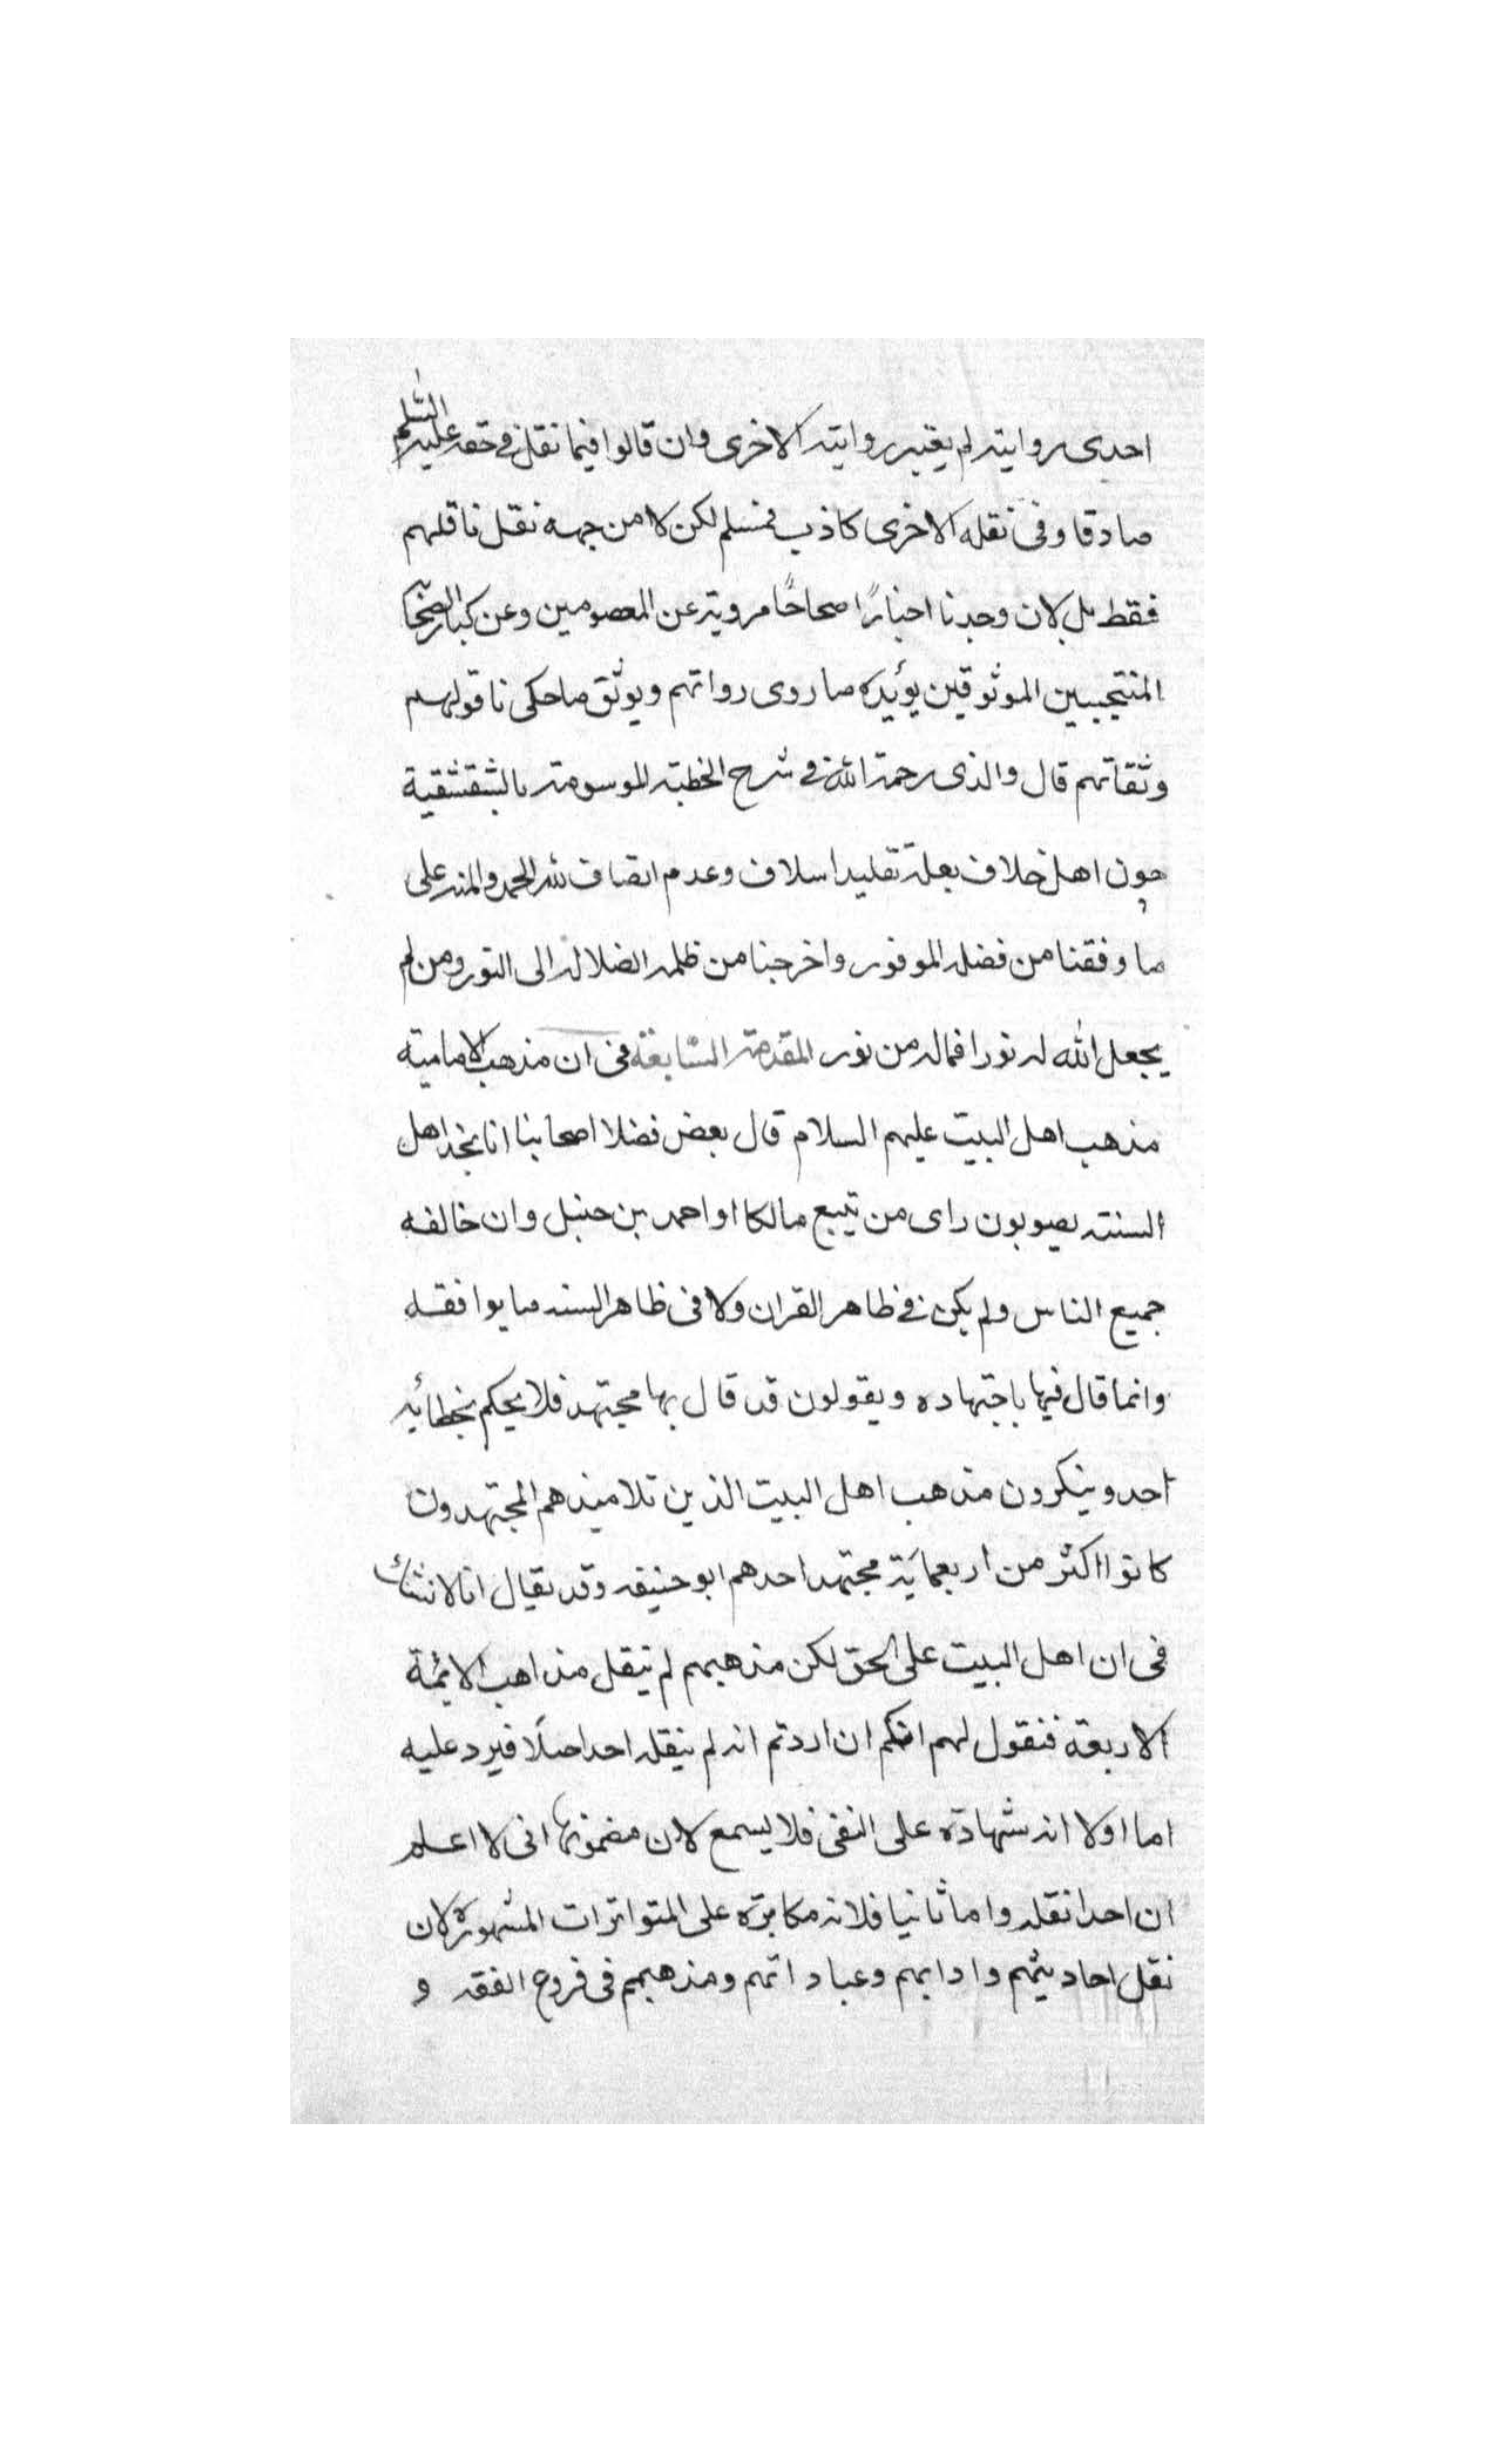 احدى روايته لم يعتبر روايته الاخرى وان قالوا فيما نقل في حقه عليه السلم
صادقا وفى نقله الاخرى كاذب فمسلم لكن لا من جهه نقل ناقلهم
فقط بل لان وجدنا اخبارًا صحاحًا مروية عن المعصومين وعن كبار الصحا
المنتجبين الموثوقين يؤيده ما روى رواتهم ويوثق ما حكى ناقولهم
وثقاتهم قال والذى رحمة الله في شرح الخطبة الموسومة بالشقشقية
چون اهل خلاف بعلة تقليد اسلاف وعدم اتصاف لله الحمد والمنه على
ما وفقنا من فضله الموفور واخرجنا من ظلمه الضلاله الى النور ومن لم
يجعل الله له نورا فماله من نور المقدمة السابعة فى ان مذهب الامامية
مذهب اهل البيت عليهم السلام قال بعض فضلا اصحابنا انا نجد اهل
السنة يصوبون راى من يتبع مالكا او احمد بن حنبل وان خالفه
جميع الناس ولم يكن في ظاهر القران ولا فى ظاهر السنه ما يوافقه
وانما قال فيها باجتهاده ويقولون قد قال بها مجتهد فلا يحكم بخطائه
احد وينكرون مذهب اهل البيت الذين تلاميذهم المجتهدون
كانوا اكثر من اربعماية مجتهد احدهم ابو حنيفه وقد يقال انا لا نشك
فى ان اهل البيت على الحق لكن مذهبهم لم ينقل مذاهب الايمة
الاربعة فنقول لهم انكم ان اردتم انه لم ينقله احد اصلًا فيرد عليه
اما اولا انه شهادة على النفى فلا يسمع لان مضمونها انى لا اعلم
ان احدا نقله واما ثانيا فلانه مكابرة على المتواترات المشهورة لان
نقل احاديثهم وادابهم وعباداتهم ومذهبهم فى فروع الفقه و